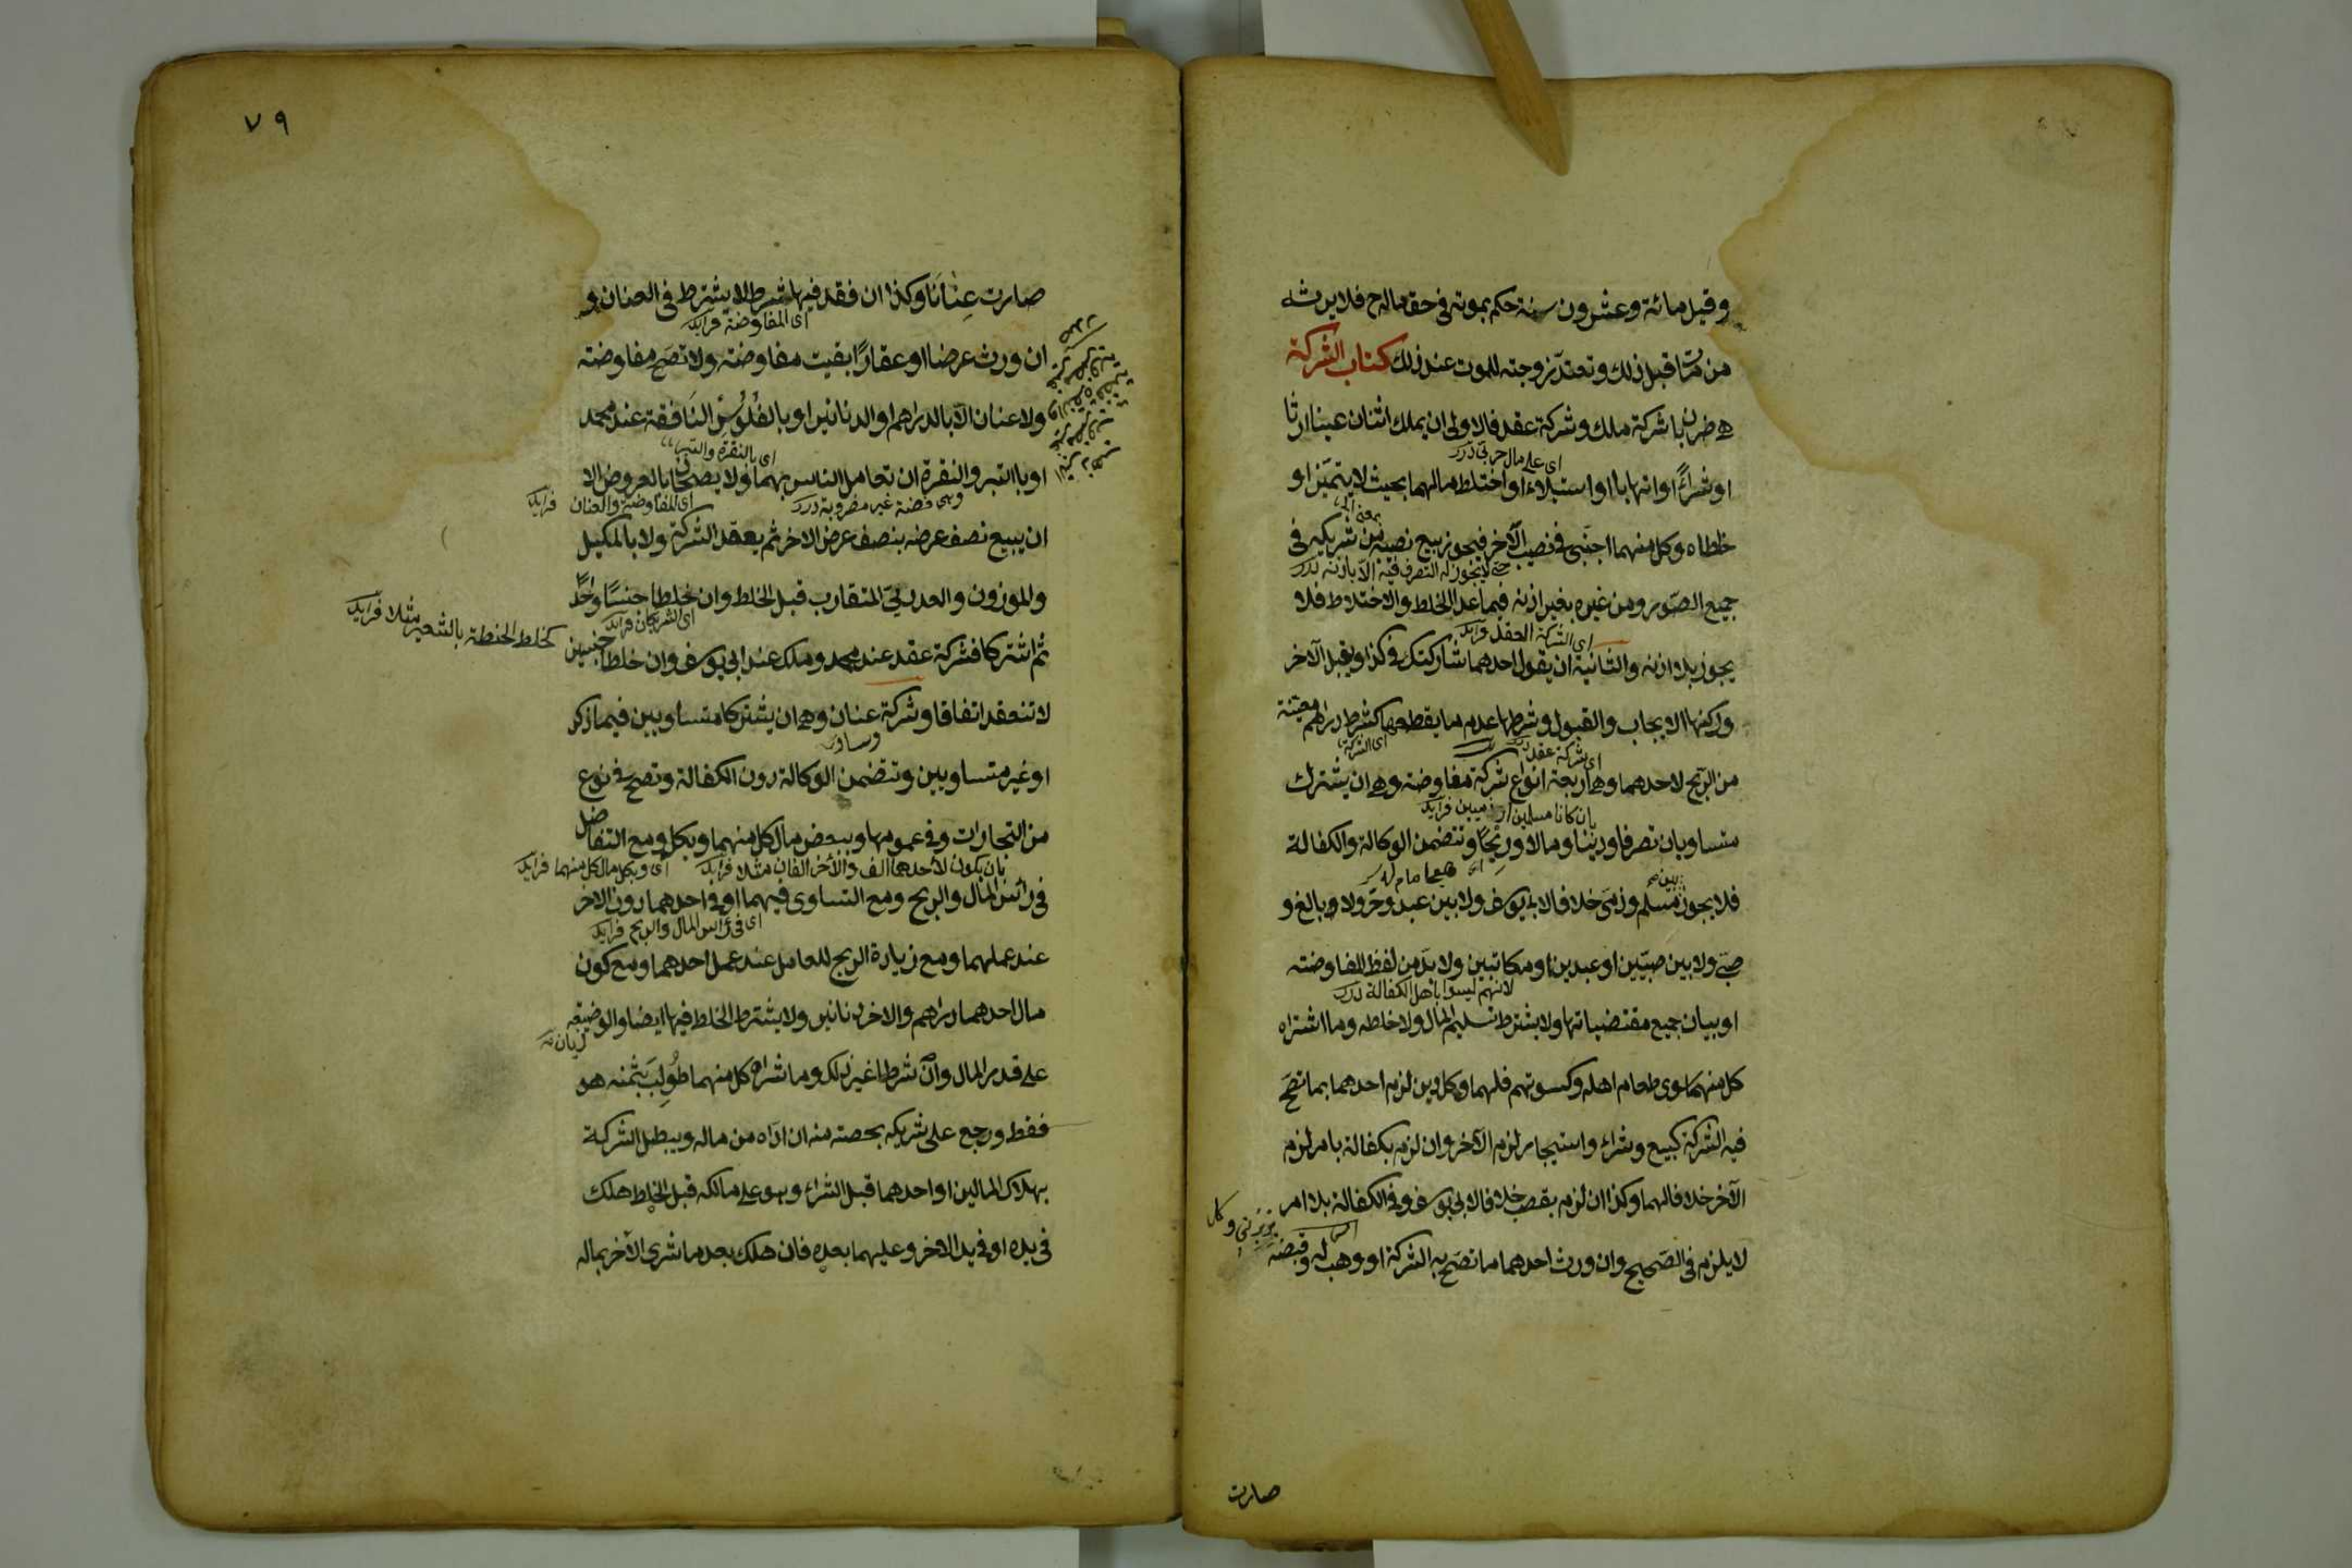 وقيل مائة وعشرون سنة حكم بموته في حق ماله ح فلا يرثه
من مات قبل ذلك وتعتد زوجته للموت عند ذلك كتاب الشركة
هي ضربان شركة ملك وشركة عقد فالاولى ان يملك اثنان عينا ارثا
او شراءً او اتهابا او استيلاء او اختلط مالهما بحيث لا يتميز او
اى على مال حربى درر
خلطاه وكل منهما اجنبى في نصيب الآخر فيجوز بيع نصيبه من شريكه في
حتى لا يجوز له التصرف فيه الا باذنه درر
جميع الصور ومن غيره بغير اذنه فيما عدا الخلط والاختلاط فلا
اى الشركة العقد فرايد
يجوز بلا اذنه والثانية ان يقول احدهما شاركتك في كذا ويقبل الآخر
وركنها الايجاب والقبول وشرطها عدم ما يقطعها كشرط دراهم معينة
اى شركة عقد درر
اى الشركة
من الربح لاحدهما وهى اربعة انواع شركة مفاوضة وهى ان يشترك
بان كانا مسلمين او ذميين فرايد
متساويان تصرفا ودينا ومالا وربحًا وتتضمن الوكالة والكفالة
فلا يجوز بين مسلم وذمى خلافا لابى يوسف ولا بين عبد وحر ولا وبالغ و
صبى ولا بين صبيين او عبدين او مكاتبين ولا بد من لفظ المفاوضة
لانهم ليسوا باهل الكفالة درر
او بيان جميع مقتضياتها ولا يشترط تسليم المال ولا خلطه وما اشتراه
كل منهما سوى طعام اهله وكسوتهم فلهما وكل دين لزم احدهما بما تصح
فيه الشركة كبيع وشراء واستيجار لزم الآخر وان لزم بكفالة بامر لزم
الآخر خلافا لهما وكذا ان لزم بغصب خلافا لابى يوسف وفي الكفالة بلا امر
لا يلزم في الصحيح وان ورث احدهما ما تصح به الشركة او وهب له وقبضه
صارت
٧٩
صارت عِنانًا وكذا ان فقد فيها شرط لا يشترط فى العنان و
اى المفاوضة فرايد
ان ورث عرضا او عقارًا بقيت مفاوضته ولا تصح مفاوضته
ولا عنان الا بالدراهم او الدنانير او بالفُلُوسِ النافقة عند محمد
اى بالنقرة والتبر
او بالتبر والنقرة ان تعامل الناس بهما ولا يصحان بالعروض الا
وهى فضة غير مضروبة درر
اى المفاوضة والعنان فرايد
ان يبيع نصف عرضه بنصف عرض الاخر ثم يعقد الشركة ولا بالمكيل
والموزون والعددىّ المتقارب قبل الخلط وان خلطا جنسًا واحدًا
اى الشريكان فرايد
ثم اشتركا فشركة عقد عند محمد وملك عند ابى يوسف وان خلطا جنسين
كخلط الحنطة بالشعير مثلا فرايد
لا تنعقد اتفاقا وشركة عنان وهى ان يشتركا متساويين فيما ذكر
او غير متساويين وتتضمن الوكالة دون الكفالة وتصح في نوع
من التجارات وفي عمومها وببعض مال كل منهما وبكل ومع التفاضل
بان يكون لاحدهما الف والآخر الفان مثلا فرايد
اى وبكل مال كل منهما فرايد
في رأس المال والربح ومع التساوى فيهما او في احدهما دون الاخر
اى فى رأس المال والربح فرايد
عند عملهما ومع زيادة الربح للعامل عند عمل احدهما ومع كون
مال احدهما دراهم والاخر دنانير ولا يشترط الخلط فيها ايضا والوضيعة
على قدر المال وان شرطا غير ذلك وما شراه كل منهما طُولِبَ بثمنه هو
فقط ورجع على شريكه بحصته منه ان اداه من ماله ويبطل الشركة
بهلاك المالين او احدهما قبل الشراء وهو على مالكه قبل الخلط هلك
فى يده او في يد الاخر وعليهما بعده فان هلك بعد ما شرى الآخر بماله